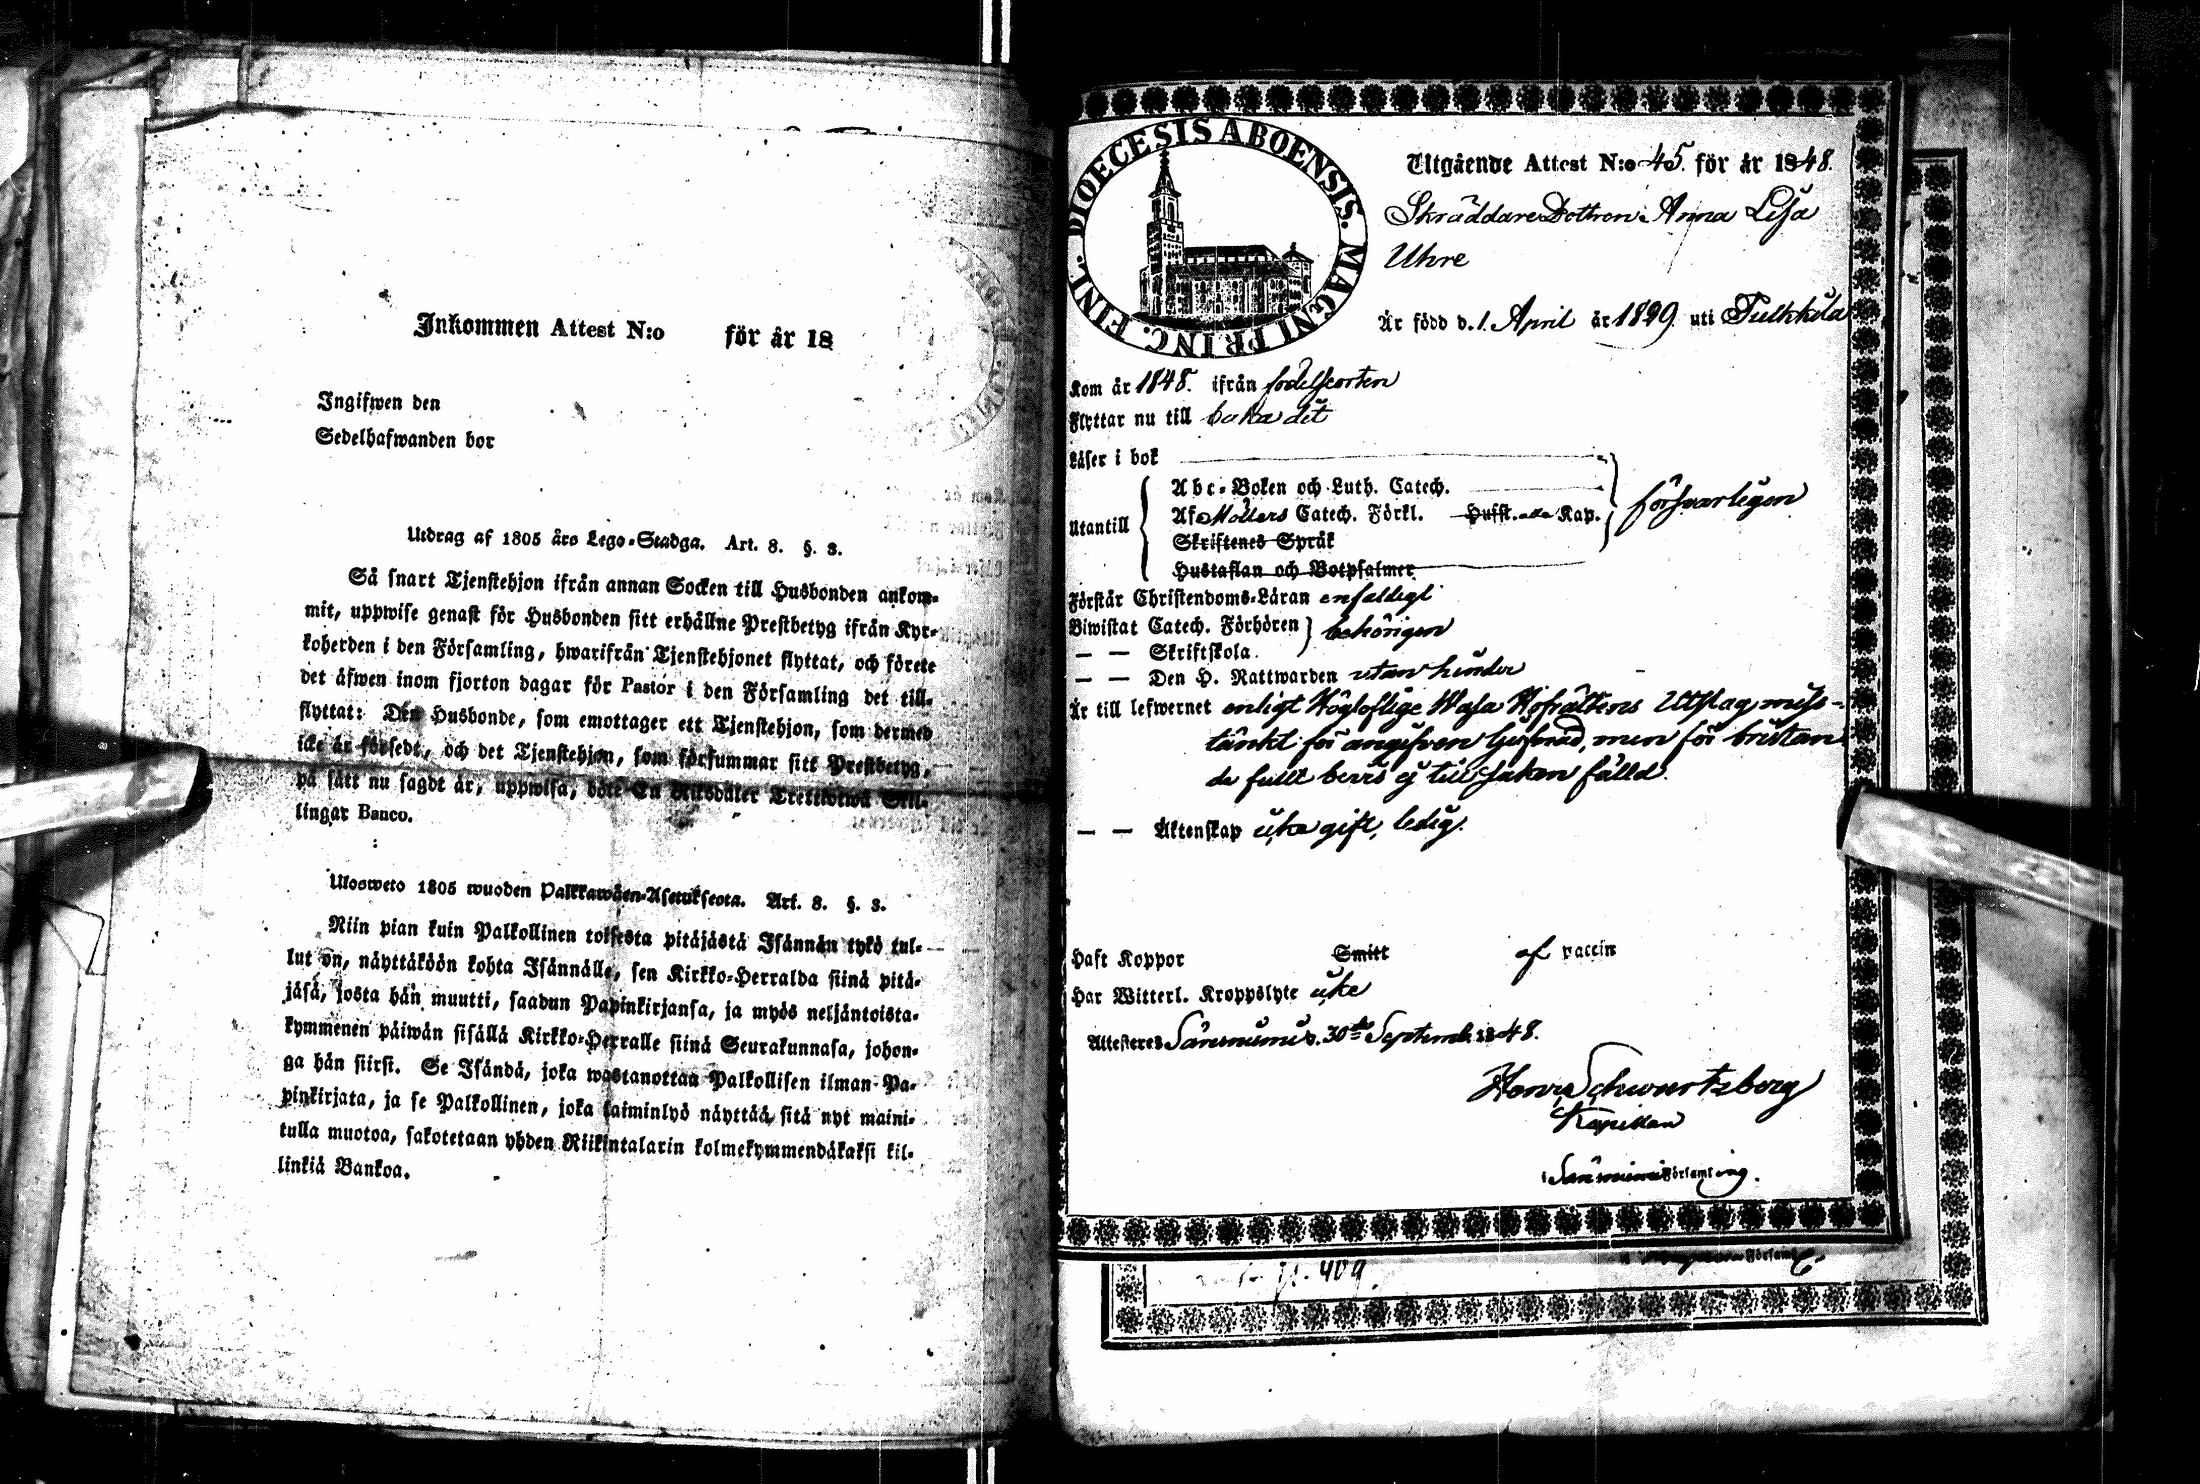 Inkommen Attest N:o för år 18
Ingifwen den
Sedelhafwanden bor
Utdrag af 1805 års Lego-Stadga. Art. 8. §. 3.
Så snart Tjenstehjon ifrån annan Socken till Husbonden ankom-
mit, uppwise genast för Husbonden sitt erhållne Prestbetyg ifrån Kyr-
koherden i den Församling, hwarifrån Tjenstehjonet flyttat, och förete
det äfwen inom fjorton dagar för Pastor i den Församling det till-
flyttat: Den Husbonde, som emottager ett Tjenstehjon, som dermed
icke är försedt, och det Tjenstehjon, som försummar sitt Prestbetyg,
på sätt nu sagdt är, uppwisa, böte En Riksdaler Trettiotwå Skil-
lingar Banco.
Ulosweto 1805 wuoden Palkkawäen-Asetuksesta. Art. 8. §. 3.
Niin pian kuin Palkollinen toisesta pitäjästä Isännän tykö tul-
lut on, näyttäköön kohta Isännälle, sen Kirkko-Herralda siinä pitä-
jäsä, josta hän muutti, saadun Papinkirjansa, ja myös neljäntoista-
kymmenen päiwän sisällä Kirkko-Herralle siinä Seurakunnasa, johon-
ga hän siirsi. Se Isändä, joka wastanottaa Palkollisen ilman Pa-
pinkirjata, ja se Palkollinen, joka laiminlyö näyttää sitä nyt maini-
tulla muotoa, sakotetaan yhden Riikintalarin kolmekymmendäkaksi kil-
linkiä Bankoa.
DIOECESIS ABOENSIS. MAGNI PRINC. FINL.
Utgående Attest N:o 45. för år 1848.
Skräddare Dottren Anna Lisa
Uhre
Är född d. 1. April år 1829 uti Pulkkila
Kom år 1848. ifrån födelseorten
Flyttar nu till baka dit
Läser i bok
Utantill
Abc-Boken och Luth. Catech.
Af Möllers Catech. Förkl. Husst. alla Kap.
försvarligen
Skriftenes Språk
Hustaflan och Botpsalmer
Förstår Christendoms-Läran enfaldigt
Biwistat Catech. Förhören behörigen
— — Skriftskola.
— — Den H. Nattwarden utan hinder
Är till lefwernet enligt Högloflige Wasa Hofrättens Utslag miss-
tänkt för angifven tjufnad, men för bristan
de fullt bevis ej till saken fälld.
— — Äktenskap icke gift, ledig.
Haft Koppor Smitt af vaccin
Har Witterl. Kroppslyte icke
Attesteres Säresniemi d. 30de Septemb. 1848.
Henr. Schwartzberg
Kapellan
i Säresniemi Församling.
Församl
409.